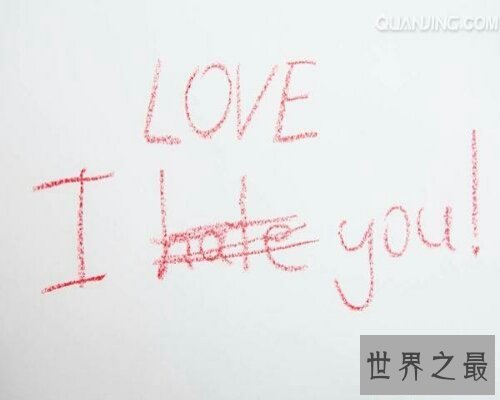 QUANJING.COM
LOVE
I hate you!
世界之最